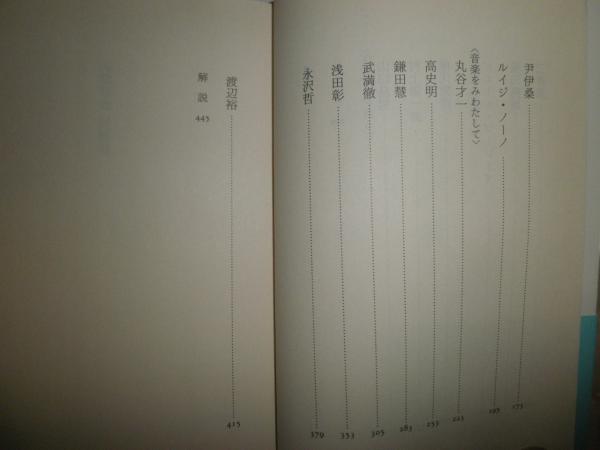 尹伊桑 173
ルイジ・ノーノ 195
〈音楽をみわたして〉
丸谷才一 223
高史明 253
鎌田慧 283
武満徹 305
浅田彰 353
永沢哲 379
渡辺裕 415
解説 445